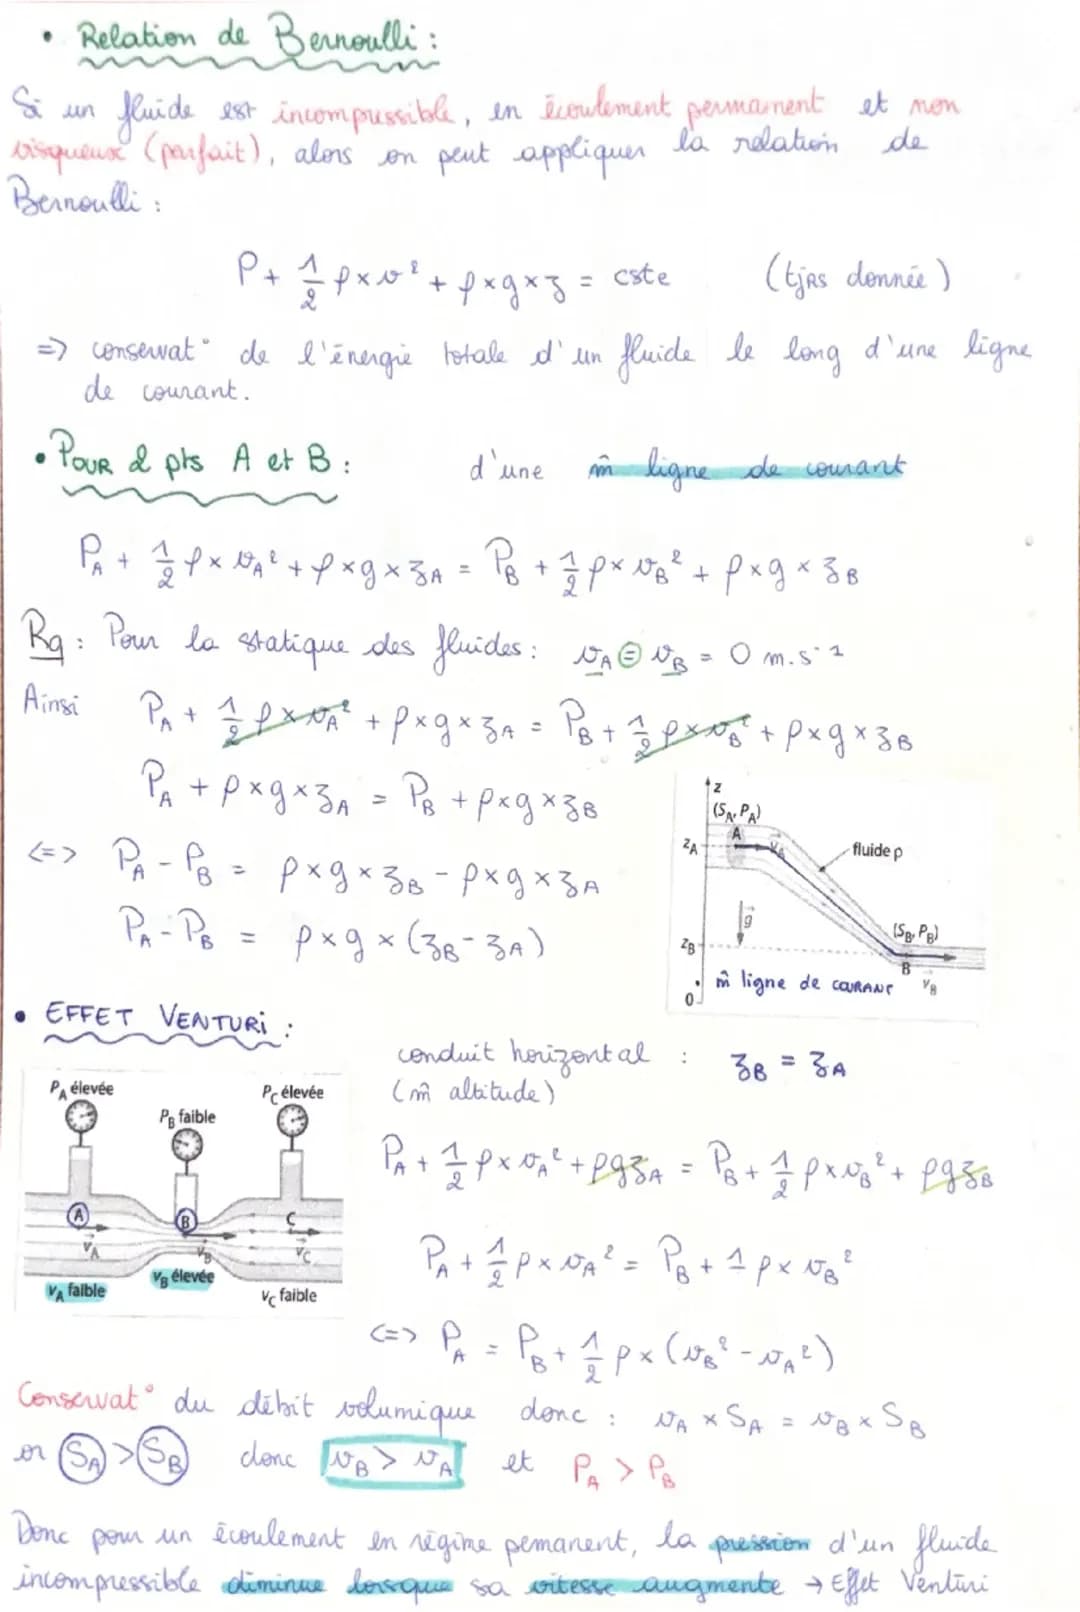 • Relation de Bernoulli :
Si un fluide est incompressible, en écoulement permanent et non
visqueux (parfait), alors on peut appliquer la relation de
Bernoulli :
P + 1/2 ρ × v² + ρ × g × z = cste (tjrs donnée)
=> conservat° de l'énergie totale d'un fluide le long d'une ligne
de courant.
• Pour 2 pts A et B : d'une m̂ ligne de courant
P_A + 1/2 ρ × v_A² + ρ × g × z_A = P_B + 1/2 ρ × v_B² + ρ × g × z_B
Rq : Pour la statique des fluides : v_A = v_B = 0 m.s⁻¹
Ainsi P_A + 1/2 ρ × v_A² + ρ × g × z_A = P_B + 1/2 ρ × v_B² + ρ × g × z_B
P_A + ρ × g × z_A = P_B + ρ × g × z_B
<=> P_A - P_B = ρ × g × z_B - ρ × g × z_A
P_A - P_B = ρ × g × (z_B - z_A)
z
(S_A, P_A)
z_A A v_A fluide ρ
g
(S_B, P_B)
z_B B v_B
m̂ ligne de COURANT
0
• EFFET VENTURI :
P_A élevée P_B faible P_C élevée
A B C
v_A v_B v_C
v_A faible v_B élevée v_C faible
conduit horizontal : z_B = z_A
(m̂ altitude)
P_A + 1/2 ρ × v_A² + ρg z_A = P_B + 1/2 ρ × v_B² + ρg z_B
P_A + 1/2 ρ × v_A² = P_B + 1/2 ρ × v_B²
<=> P_A = P_B + 1/2 ρ × (v_B² - v_A²)
Conservat° du débit volumique donc : v_A × S_A = v_B × S_B
or S_A > S_B donc v_B > v_A et P_A > P_B
Donc pour un écoulement en régime pemanent, la pression d'un fluide
incompressible diminue lorsque sa vitesse augmente → Effet Venturi